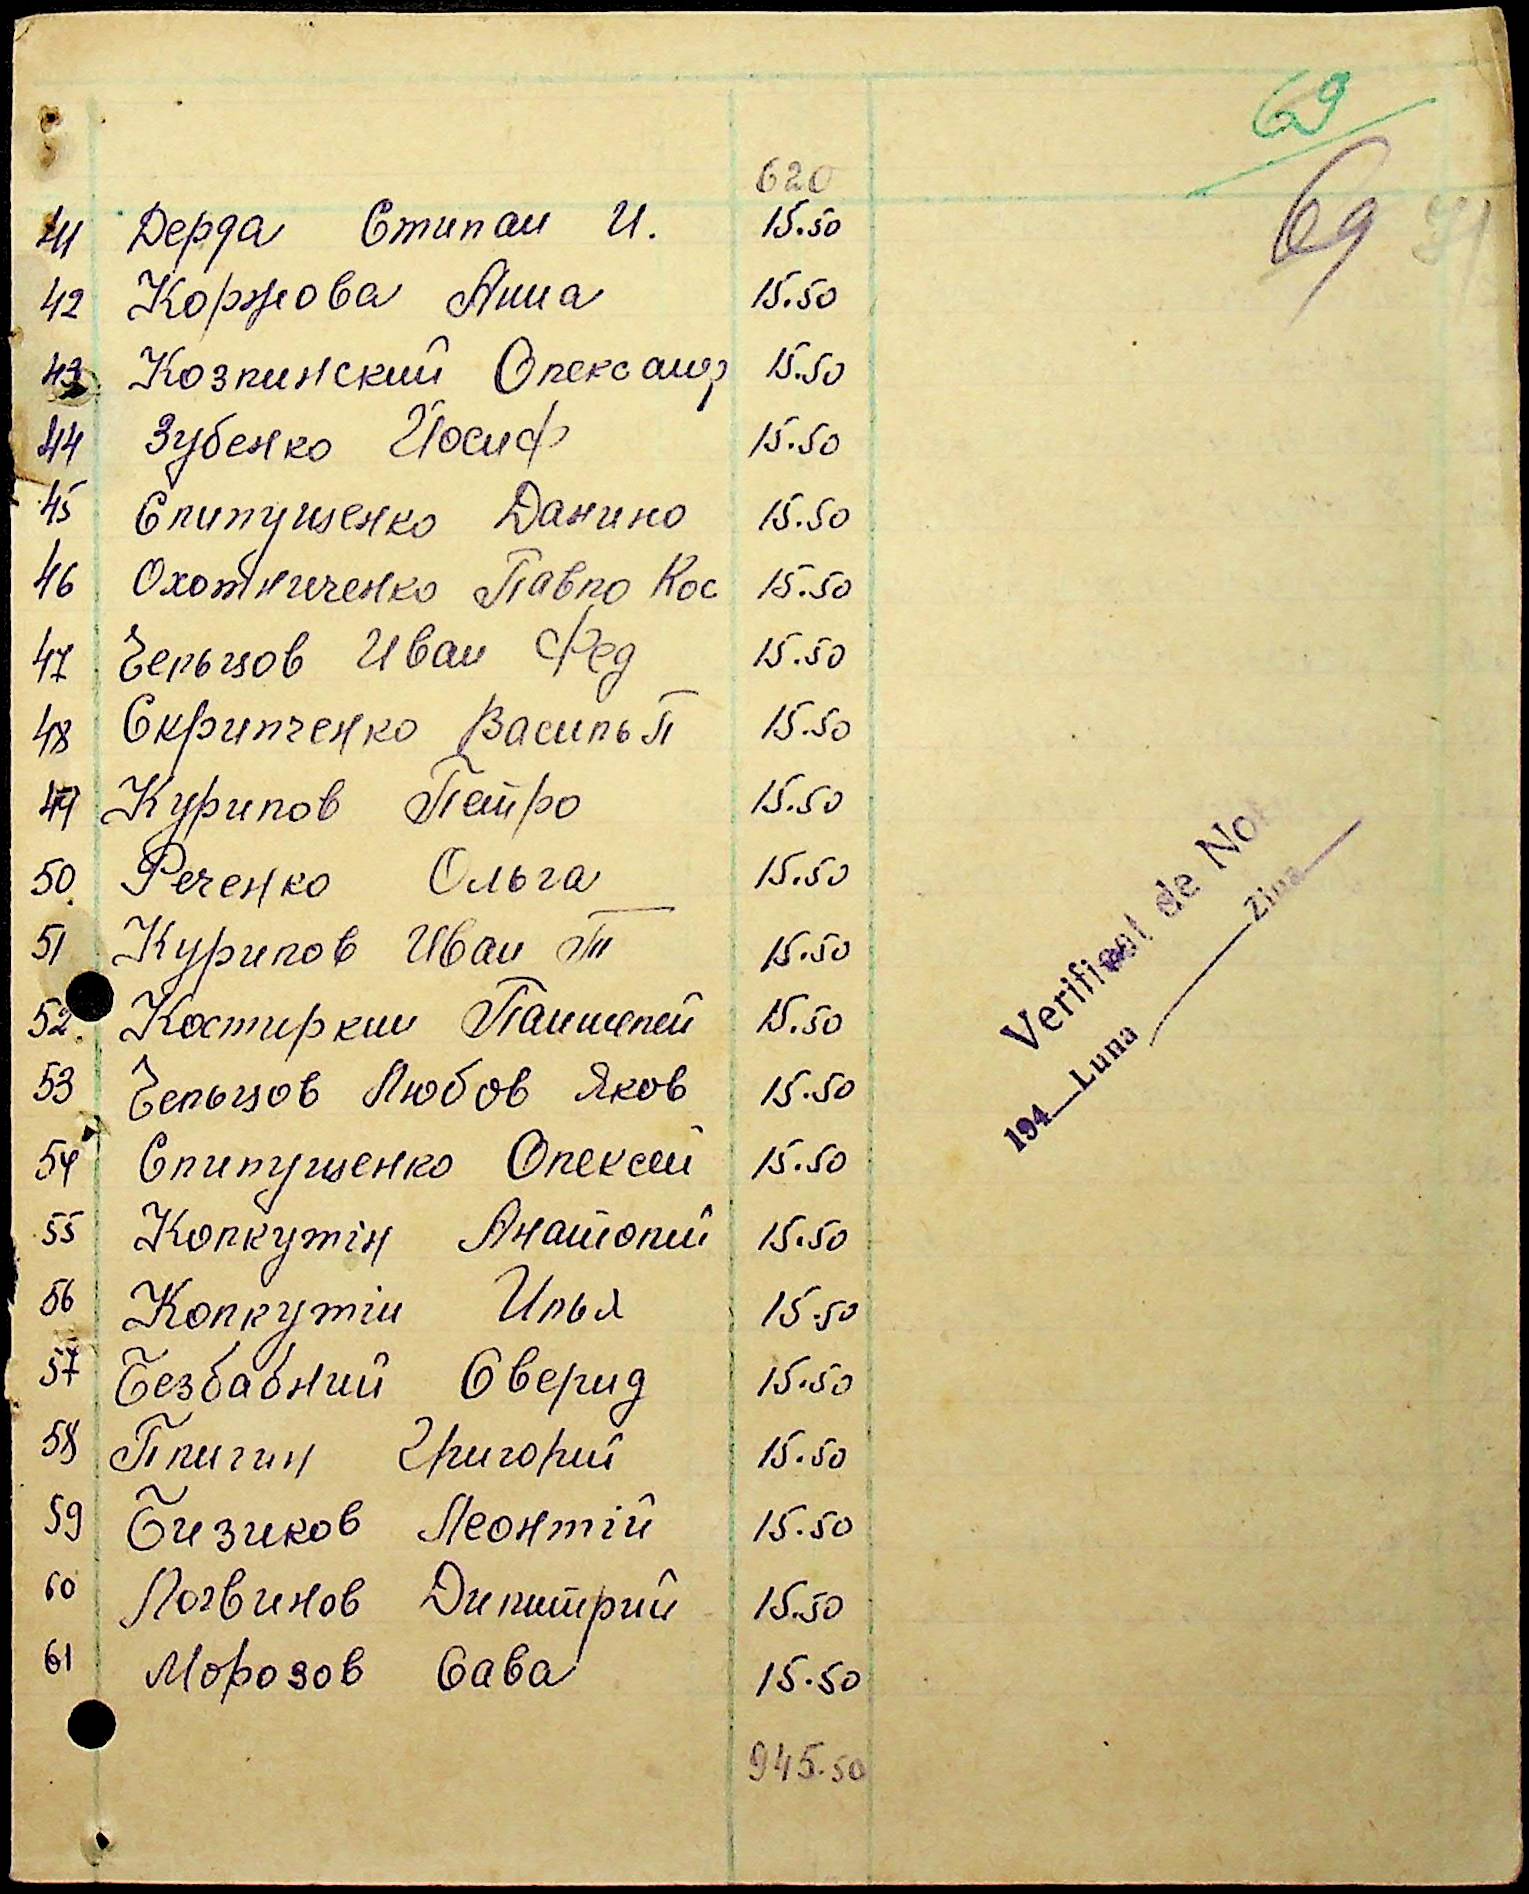 69
69 71
620
41 Дерда Степан И. 15.50
42 Коржова Анна 15.50
43 Козлинский Олександр 15.50
44 Зубенко Йосиф 15.50
45 Слипущенко Данило 15.50
46 Охотниченко Павло Кос 15.50
47 Чельцов Иван Фед 15.50
48 Скрипченко Василь П 15.50
49 Курилов Петро 15.50
50. Реченко Ольга 15.50
51 Курилов Иван Т 15.50
52. Костиркин Пантелей 15.50
53 Чельцов Любов Яков 15.50
54 Слипущенко Олексей 15.50
55 Колкутін Анатолий 15.50
56 Колкутін Илья 15.50
57 Безбабний Сверид 15.50
58 Плигин Григорий 15.50
59 Бизиков Леонтій 15.50
60 Логвинов Димитрий 15.50
61 Морозов Сава 15.50
945.50
Verificat de
194 Luna Ziua